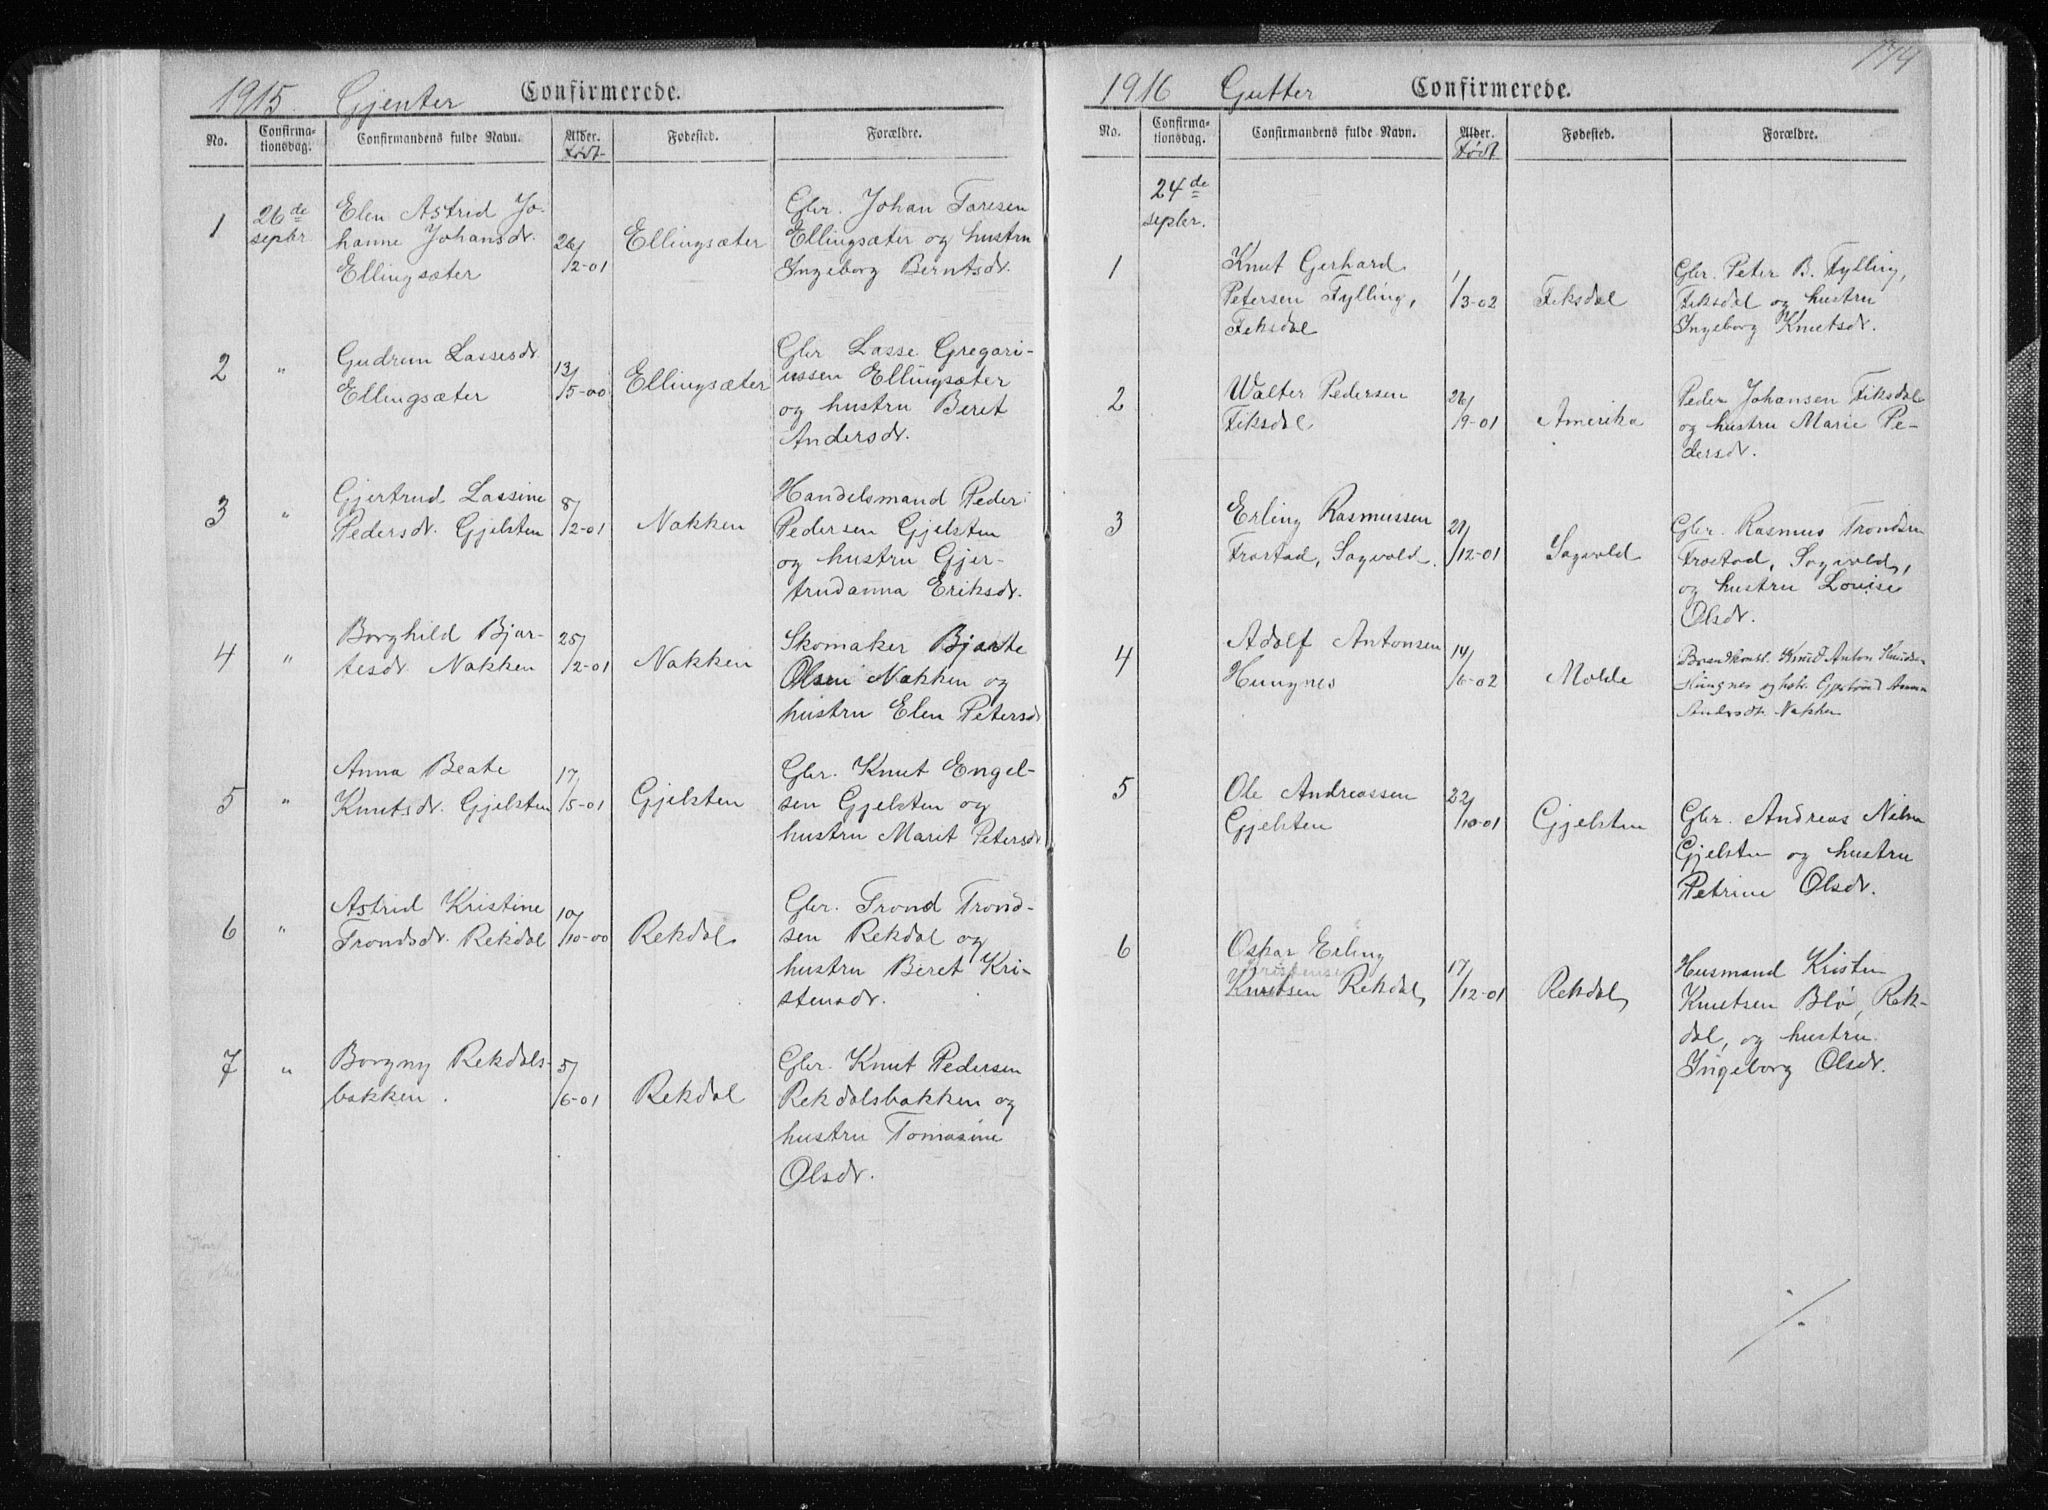 1915. Gjenter Confirmerede.
No. Confirma-tionsdag. Confirmandens fulde Navn. Alder. Født Fødested. Forældre.
1 26de septbr Elen Astrid Jo-
hanne Johansdr.
Ellingsæter
26/2-01 Ellingsæter
Gbr. Johan Taresen
Ellingsæter og hustru
Ingeborg Berntsdr.
2 " Gudrun Lassesdr.
Ellingsæter
13/5-00 Ellingsæter
Gbr Lasse Gregori-
ussen Ellingsæter
og hustru Beret
Andersdr.
3 " Gjertrud Lassine
Pedersdr. Gjelsten
8/2-01 Nakken
Handelsmand Peder
Pedersen Gjelsten
og hustru Gjer-
trudanna Eriksdr.
4 " Borghild Bjar-
tesdr. Nakken
25/2-01 Nakken
Skomaker Bjarte
Olsen Nakken og
hustru Elen Petersdr
5 " Anna Beate
Knutsdr. Gjelsten
17/5-01 Gjelsten
Gbr. Knut Engel-
sen Gjelsten og
hustru Marit Petersdr
6 " Astrid Kristine
Trondsdr. Rekdal
10/10-00 Rekdal
Gbr. Trond Trond-
sen Rekdal og
hustru Beret Kri-
stensdr.
7 " Borgny Rekdals-
bakken.
5/6-01 Rekdal
Gbr. Knut Pedersen
Rekdalsbakken og
hustru Tomasine
Olsdr.
174
1916 Gutter Confirmerede.
No. Confirma-tionsdag. Confirmandens fulde Navn. Alder. Født Fødested. Forældre.
24de
septbr.
1 Knut Gerhard
Petersen Fylling,
Fiksdal
1/3-02 Fiksdal
Gbr. Peter B. Fylling,
Fiksdal og hustru
Ingeborg Knutsdr.
2 Walter Pedersen
Fiksdal
26/9-01 Amerika
Peder Johansen Fiksdal
og hustru Marie Pe-
dersdr.
3 Erling Rasmussen
Frostad, Sagvold.
/12-01 Sagvold
Gbr. Rasmus Trondsen
Frostad, Sagvold,
og hustru Louise
Olsdr.
4 Adolf Antonsen
Hungnes
14/6-02 Molde
Knud Anton Knudsen
Hungnes og hstr. Gjertrud Anna
Andersdtr. Nakken
5 Ole Andreassen
Gjelsten
22/10-01 Gjelsten
Gbr. Andreas Nilsen
Gjelsten og hustru
Petrine Olsdr.
6 Oskar Erling
Kristensen
Knutsen Rekdal,
17/12-01 Rekdal,
Husmand Kristen
Knutsen Blø, Rek-
dal, og hustru
Ingeborg Olsdr.